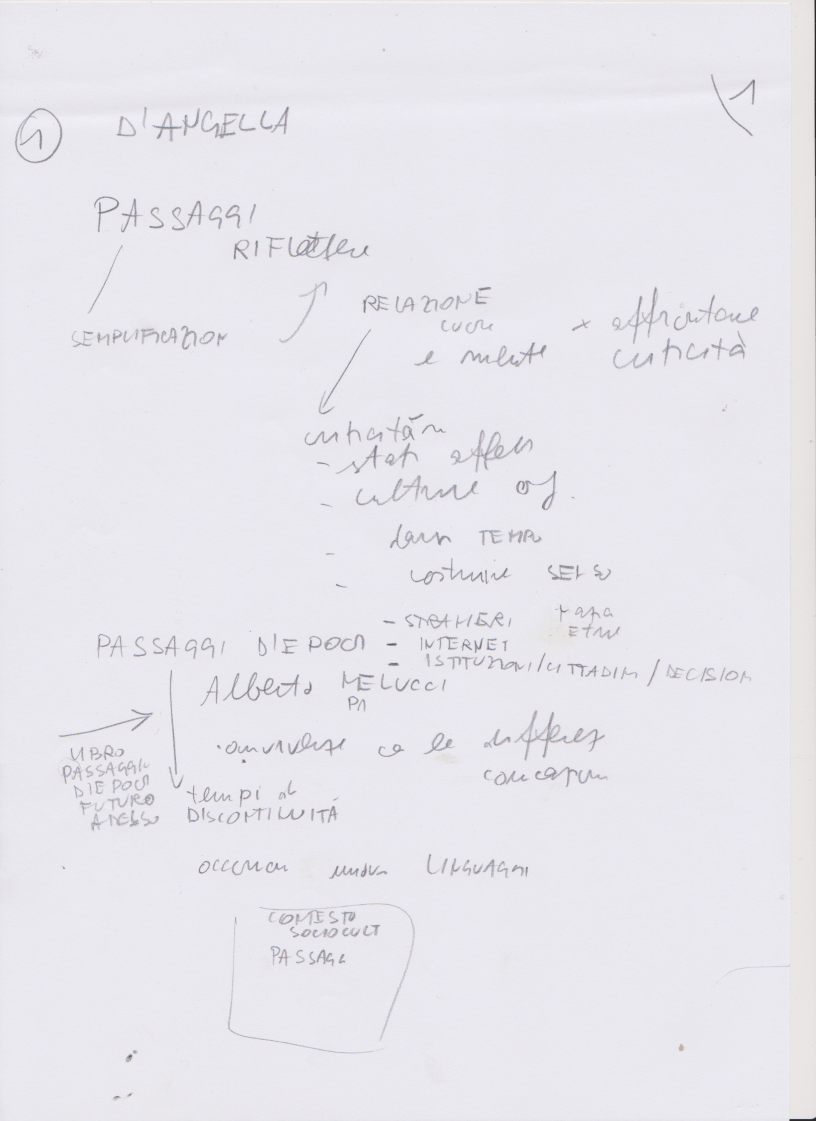 1
1
D'ANGELLA
PASSAGGI
RIFLettere
SEMPLIFICAZION
RELAZIONE
cuore
e mente
x affrontare
criticità
criticità in
- stati affett
- culture org.
- darsi TEMPO
- costruire SENSO
PASSAGGI D'EPOCA
- STRANIERI
- INTERNET
- ISTITUZIONI/CITTADINI/DECISION
Alberto MELUCCI
convivenze co le differenz
LIBRO
PASSAGGIO
D'EPOCA
FUTURO
ADESSO
tempi di
DISCONTINUITÀ
occorron nuovi LINGUAGGI
CONTESTO
SOCIOCULT
PASSAGG